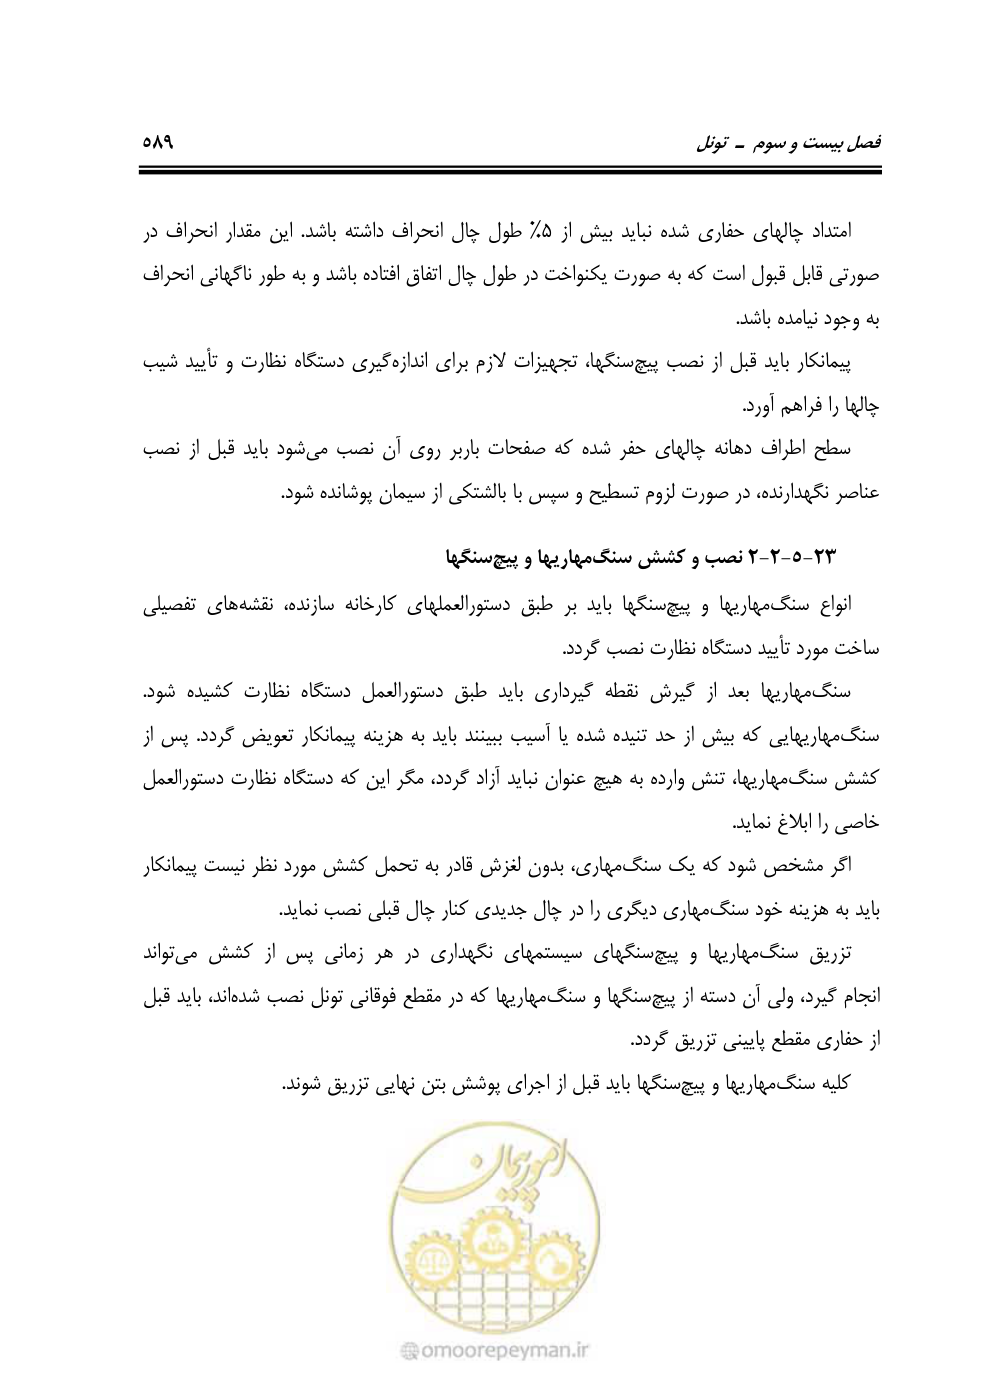 فصل بیست و سوم ـ تونل ۵۸۹
امتداد چالهای حفاری شده نباید بیش از ۵٪ طول چال انحراف داشته باشد. این مقدار انحراف در
صورتی قابل قبول است که به صورت یکنواخت در طول چال اتفاق افتاده باشد و به طور ناگهانی انحراف
به وجود نیامده باشد.
پیمانکار باید قبل از نصب پیچ‌سنگها، تجهیزات لازم برای اندازه‌گیری دستگاه نظارت و تأیید شیب
چالها را فراهم آورد.
سطح اطراف دهانه چالهای حفر شده که صفحات باربر روی آن نصب می‌شود باید قبل از نصب
عناصر نگهدارنده، در صورت لزوم تسطیح و سپس با بالشتکی از سیمان پوشانده شود.
۲۳-۵-۲-۲ نصب و کشش سنگ‌مهاریها و پیچ‌سنگها
انواع سنگ‌مهاریها و پیچ‌سنگها باید بر طبق دستورالعملهای کارخانه سازنده، نقشه‌های تفصیلی
ساخت مورد تأیید دستگاه نظارت نصب گردد.
سنگ‌مهاریها بعد از گیرش نقطه گیرداری باید طبق دستورالعمل دستگاه نظارت کشیده شود.
سنگ‌مهاریهایی که بیش از حد تنیده شده یا آسیب ببینند باید به هزینه پیمانکار تعویض گردد. پس از
کشش سنگ‌مهاریها، تنش وارده به هیچ عنوان نباید آزاد گردد، مگر این که دستگاه نظارت دستورالعمل
خاصی را ابلاغ نماید.
اگر مشخص شود که یک سنگ‌مهاری، بدون لغزش قادر به تحمل کشش مورد نظر نیست پیمانکار
باید به هزینه خود سنگ‌مهاری دیگری را در چال جدیدی کنار چال قبلی نصب نماید.
تزریق سنگ‌مهاریها و پیچ‌سنگهای سیستمهای نگهداری در هر زمانی پس از کشش می‌تواند
انجام گیرد، ولی آن دسته از پیچ‌سنگها و سنگ‌مهاریها که در مقطع فوقانی تونل نصب شده‌اند، باید قبل
از حفاری مقطع پایینی تزریق گردد.
کلیه سنگ‌مهاریها و پیچ‌سنگها باید قبل از اجرای پوشش بتن نهایی تزریق شوند.
امور پیمان
@omoorepeyman.ir